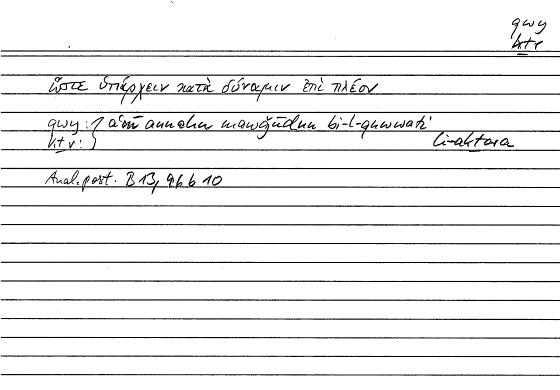 qwy
kṯr
ὥστε ὑπάρχειν κατὰ δύναμιν ἐπὶ πλέον
qwy : } aʿnī annahu mawǧūdun bi-l-quwwati
kṯr : } li-akṯara
Anal. post. B 13, 96 b 10